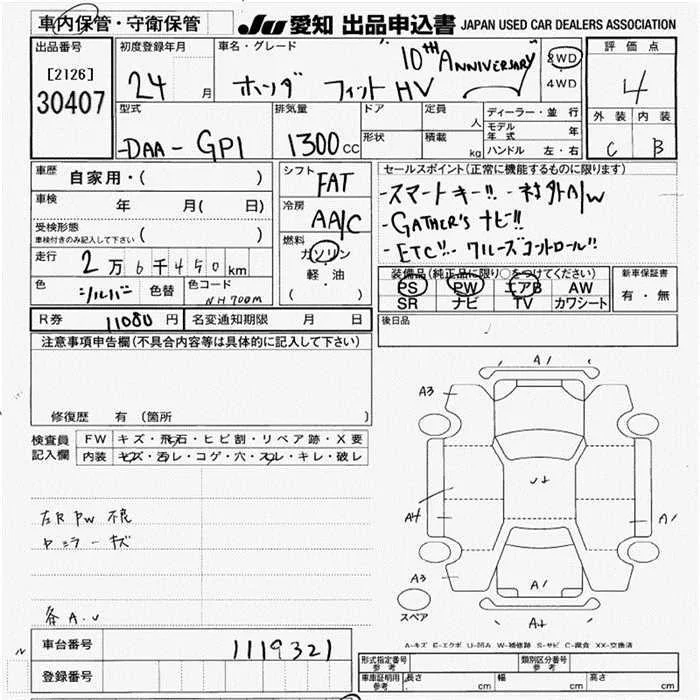 車内保管・守衛保管
JU 愛知 出品申込書 JAPAN USED CAR DEALERS ASSOCIATION
出品番号
[2126]
30407
初度登録年月
24 月
車名・グレード
"10TH ANNIVERSARY"
ホンダ フィット HV
2WD
4WD
評価点
4
外装 内装
C B
型式
DAA-GP1
排気量
1300cc
ドア
形状
定員 人
積載 kg
ディーラー・並行
モデル年式 年
ハンドル 左・右
車歴 自家用・( )
車検 年 月( 日)
受検形態
車検付きのみ記入して下さい ( )
走行 2万6千450km
色 シルバー 色替 色コード NH700M
シフト FAT
冷房 AA/C
燃料
ガソリン
軽・油
( ・ )
セールスポイント(正常に機能するものに限ります)
-スマートキー!! -社外A/W
-GATHER'S ナビ!!
-ETC!! -クルーズコントロール!!
装備品(純正品に限り○をつけてください)
PS PW エアB AW
SR ナビ TV カワシート
新車保証書
有・無
R券 11080円 名変通知期限 月 日
後日品
注意事項申告欄(不具合内容等は具体的に記入して下さい)
修復歴 有 (箇所 )
検査員記入欄
FW キズ・飛石・ヒビ割・リペア跡・X要
内装 キズ・汚レ・コゲ・穴・スレ・キレ・破レ
左R PW 不良
各A.U
A1
A3
A4
A1
A3
A1
スペア
A-キズ E-エクボ U-凹み W-補修跡 S-サビ C-腐食 XX-交換済
車台番号 1119321
登録番号
形式指定番号 参考
類別区分番号 参考
車庫証明用 参考 長さ cm 幅 cm 高さ cm